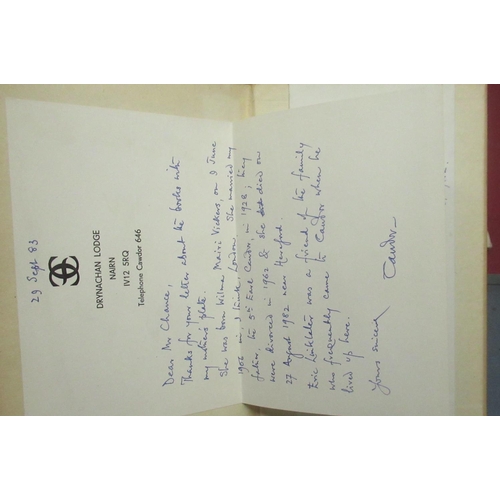 29 Sept 83
DRYNACHAN LODGE
NAIRN
IV12 5RQ
Telephone Cawdor 646
Dear Mr Chance,
Thanks for your letter about the books with
my mother's plate.
She was born Wilma Mairi Vickers, on 1 June
1906 in London. She married my
father, the 5th Earl Cawdor in 1928; they
were divorced in 1962 & she died on
27 August 1982 near Hereford.
Eric Linklater was a friend of the family
who frequently came to Cawdor when he
lived up here.
Yours sincerely
Cawdor